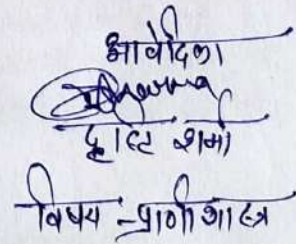 आवेदिका
दृष्टि शर्मा
विषय - प्राणीशास्त्र